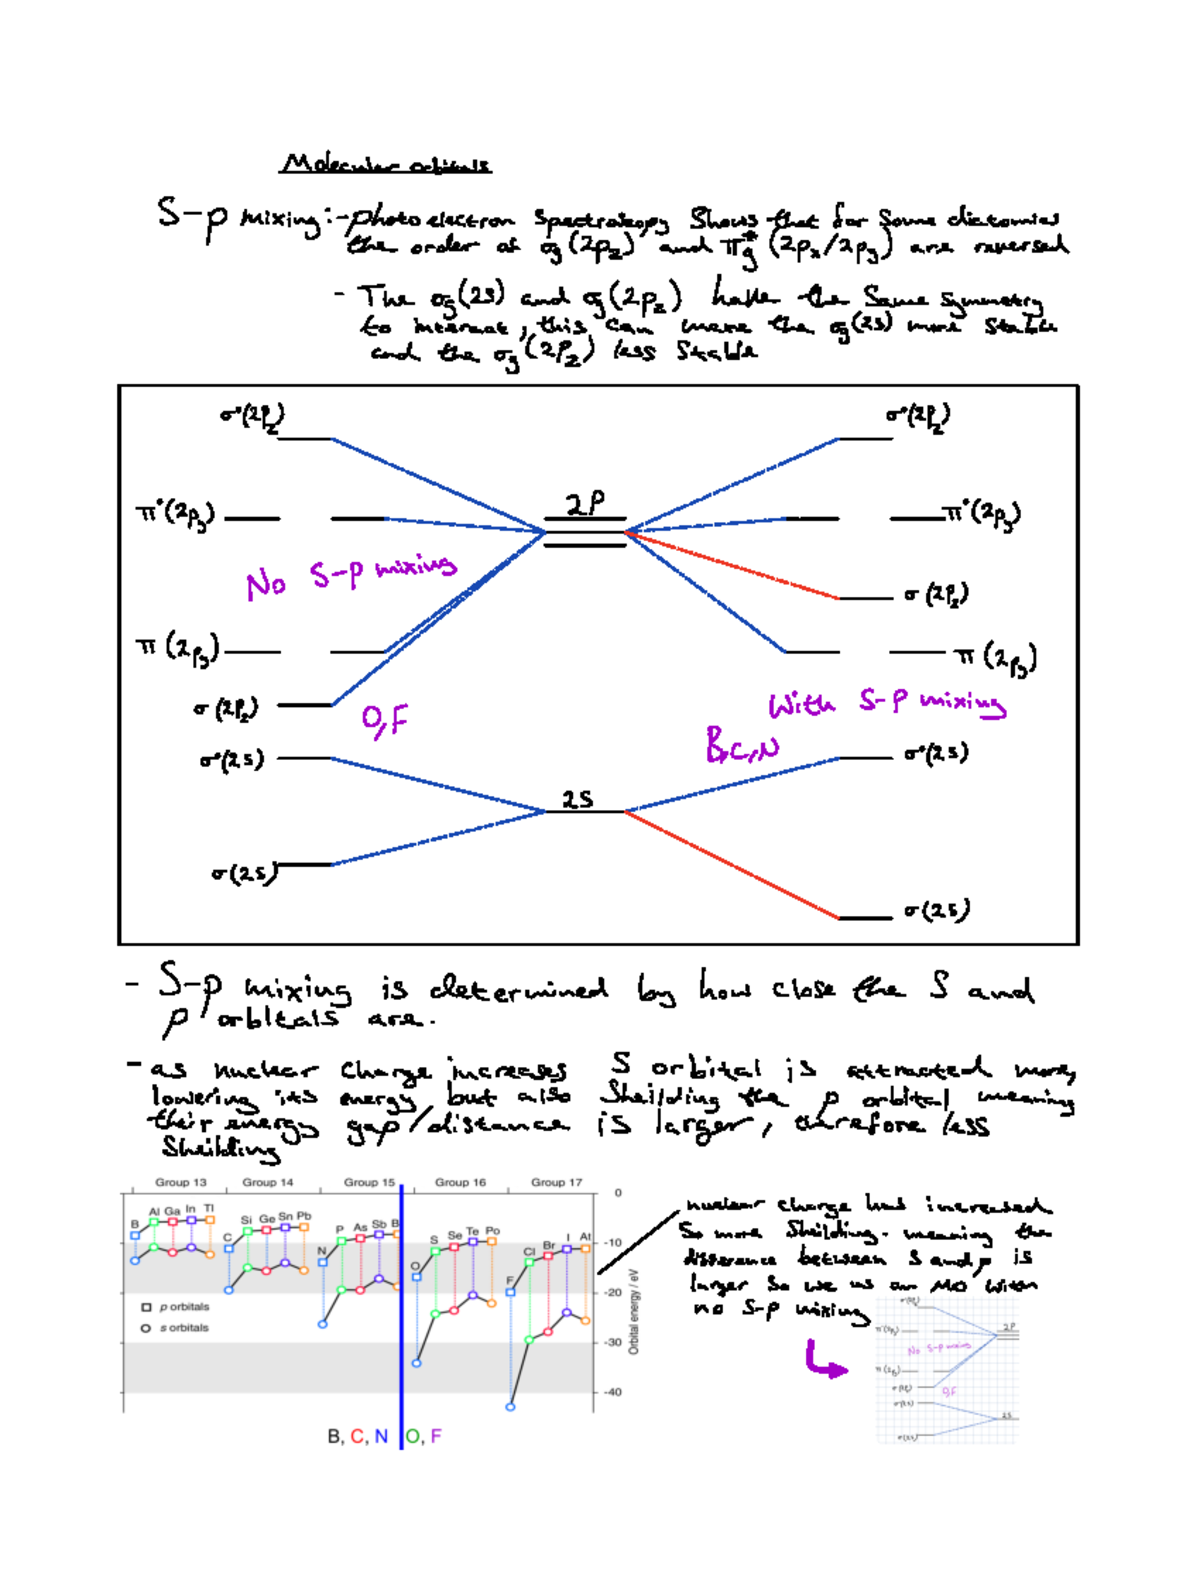 Molecular orbitals
S-p mixing:- photo electron spectroskopy shows that for some diatomics
the order of σg(2pz) and πg*(2px/2py) are reversed
- The σg(2s) and σg(2pz) have the same symmetry
to interact, this can make the σg(2s) more stable
and the σg(2Pz) less stable
σ*(2Pz) σ*(2Pz)
2P
π*(2py) π*(2py)
No S-p mixing
σ(2Pz)
π(2py) π(2py)
With S-P mixing
σ(2Pz) O,F
B,C,N
σ*(2s) σ*(2s)
2S
σ(2s)
σ(2s)
- S-p mixing is determined by how close the S and
p orbitals are.
- as nuclear charge increases S orbital is attracted more,
lowering its energy, but also Sheilding the p orbital meaning
their energy gap/distance is larger, therefore less
Sheilding
Group 13 Group 14 Group 15 Group 16 Group 17
B Al Ga In Tl
C Si Ge Sn Pb
N P As Sb B
O S Se Te Po
F Cl Br I At
p orbitals
s orbitals
0
-10
-20
-30
-40
Orbital energy / eV
B, C, N O, F
nuclear charge has increased
So more Sheilding. meaning the
difference between S and p is
larger So we us an MO with
no S-p mixing
2P
No S-p mixing
O,F
2S